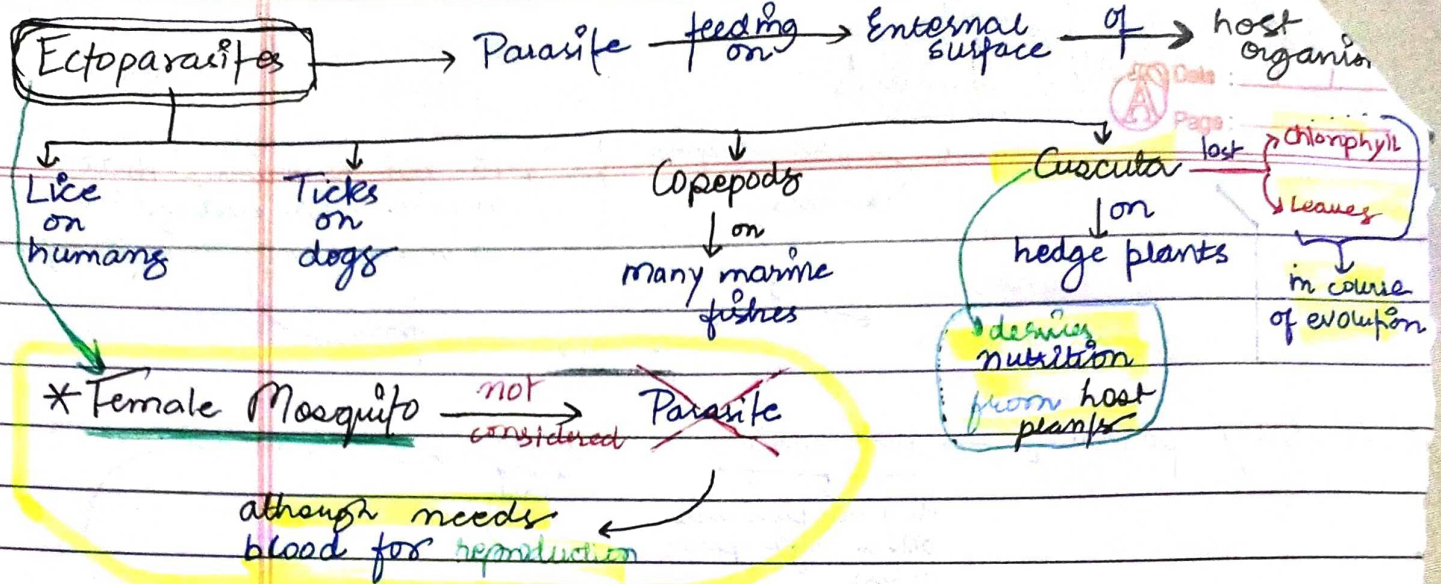 Ectoparasites → Parasite feeding on → External surface of → host
organis
Date :
Page :
Lice
on
humans
Ticks
on
dogs
Copepods
on
many marine
fishes
Cuscuta
on
hedge plants
lost
Chlorophyll
Leaves
in course
of evolution
derives
nutrition
from host
plants
*Female Mosquito not considered Parasite
although needs
blood for reproduction